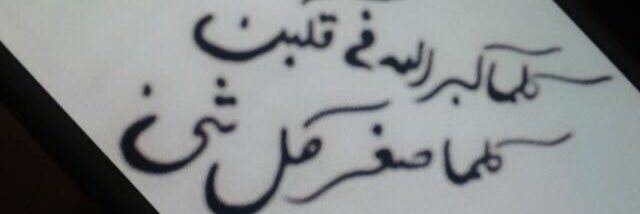 كلما كبر الله في قلبك
كلما صغر كل شئ